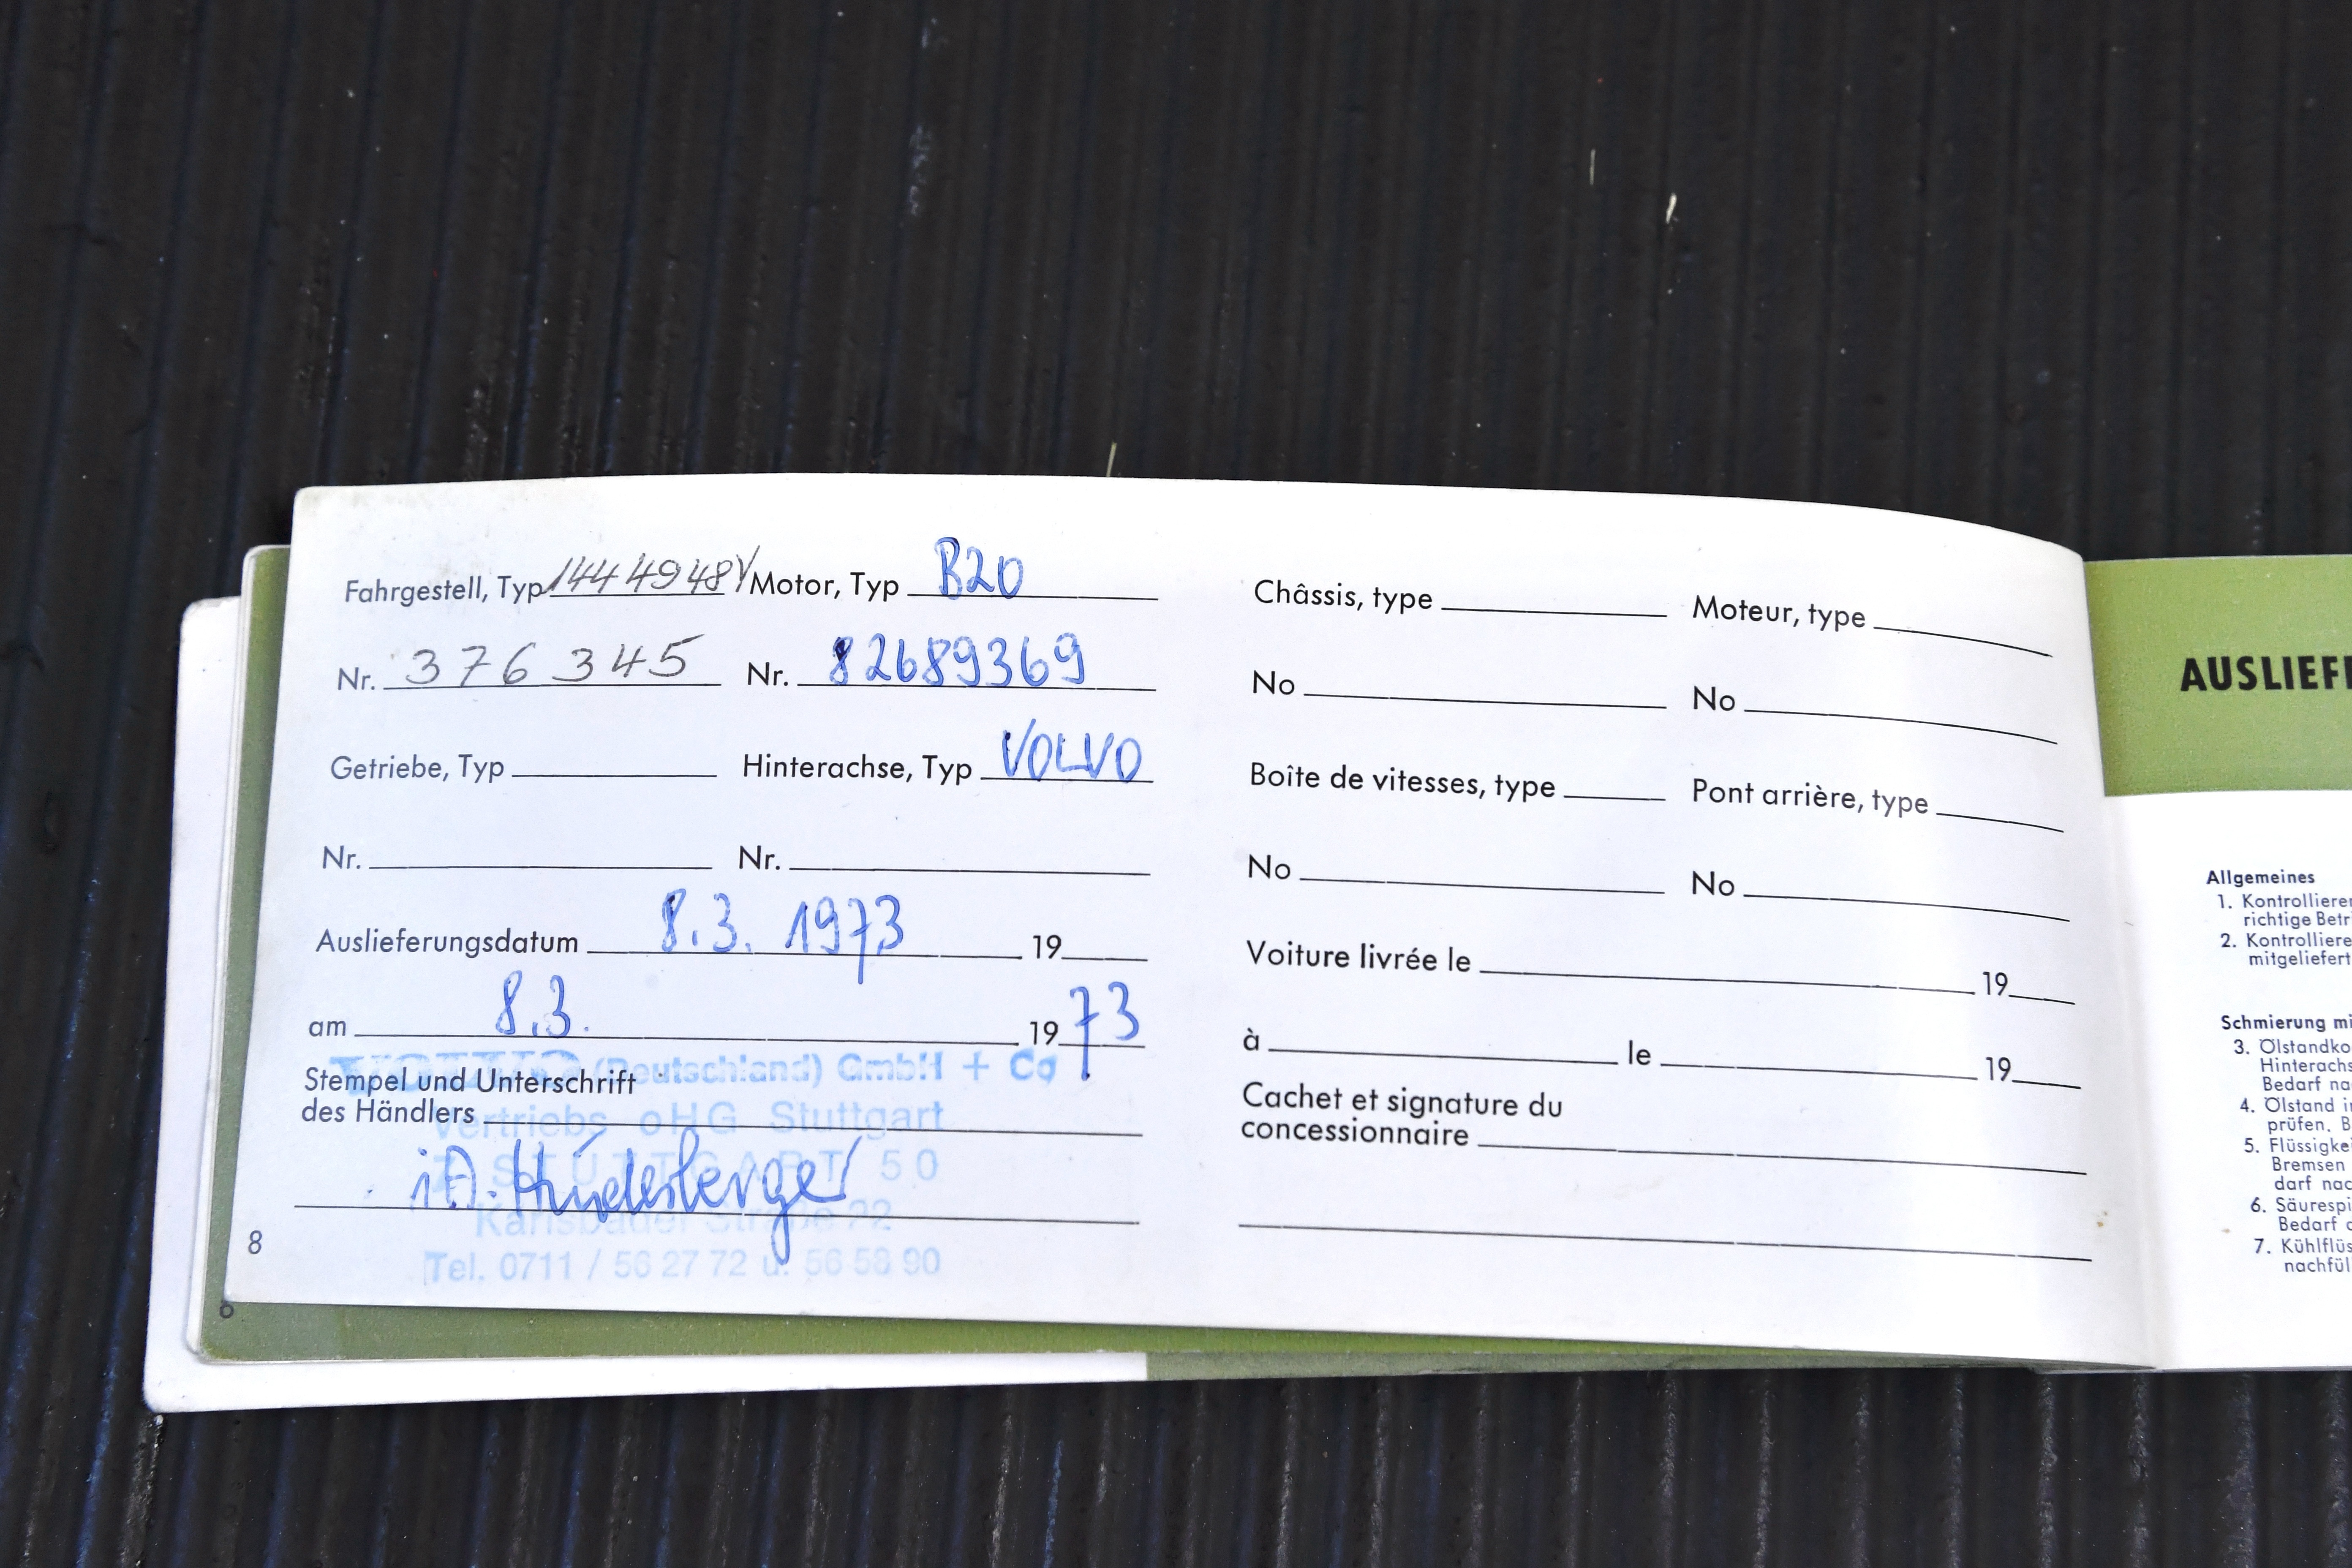 Fahrgestell, Typ 1444948Y Motor, Typ B20
Nr. 376345 Nr. 82689369
Getriebe, Typ Hinterachse, Typ VOLVO
Nr. Nr.
Auslieferungsdatum 8.3. 1973 19
am 8.3. 19 73
(Deutschland) GmbH + Co
Stempel und Unterschrift
des Händlers
Vertriebs oHG Stuttgart
7 STUTTGART 50
i.A.
Karlsbader Straße 22
Tel. 0711 / 56 27 72 u. 56 58 90
8
Châssis, type Moteur, type
No No
Boîte de vitesses, type Pont arrière, type
No No
Voiture livrée le 19
à le 19
Cachet et signature du
concessionnaire
AUSLIEF
Allgemeines
1. Kontrollieren
richtige Betr
2. Kontrolliere
mitgeliefert
Schmierung mi
3. Ölstandko
Hinterachs
Bedarf na
4. Ölstand i
prüfen. B
5. Flüssigkei
Bremsen
darf nac
6. Säurespi
Bedarf
7. Kühlflüs
nachfül